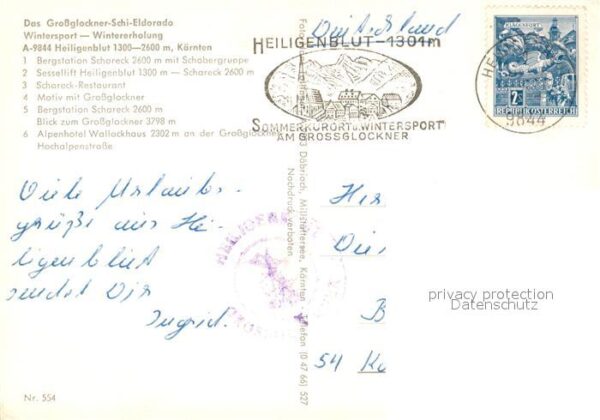 Das Großglockner-Schi-Eldorado
Wintersport — Wintererholung
A-9844 Heiligenblut 1300—2600 m, Kärnten
1 Bergstation Schareck 2600 m mit Schobergruppe
2 Sessellift Heiligenblut 1300 m — Schareck 2600 m
3 Schareck-Restaurant
4 Motiv mit Großglockner
5 Bergstation Schareck 2600 m
Blick zum Großglockner 3798 m
6 Alpenhotel Wallackhaus 2302 m an der Großglockner
Hochalpenstraße
Viele Urlaubs-
grüße aus Hei-
ligenblut
sendet Dir
Ingrid.
Nr. 554
Döbriach, Millstättersee, Kärnten - Telefon (0 47 66) 527
Nachdruck verboten
HEILIGENBLUT
Deutschland
HEILIGENBLUT-1301m
SOMMERKURORT u. WINTERSPORT
AM GROSSGLOCKNER
KLAGENFURT
2S
REPUBLIK ÖSTERREICH
9844
Her
B
54 Ko
privacy protection
Datenschutz